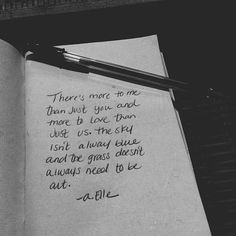 There's more to me
than just you and
more to love than
just us. the sky
isn't alway blue
and the grass doesn't
always need to be
cut.
-a.elle